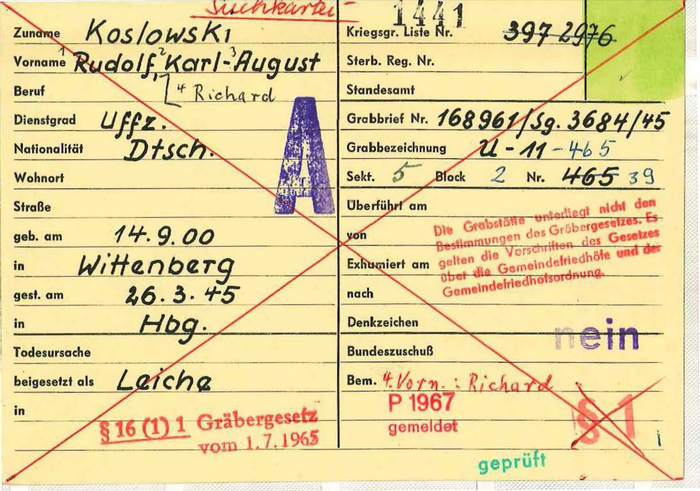 Suchkartei
Zuname Koslowski
Vorname 1 Rudolf 2 Karl- 3 August
4 Richard
Beruf
Dienstgrad Uffz.
Nationalität Dtsch.
Wohnort
Straße
geb. am 14.9.00
in Wittenberg
gest. am 26.3.45
in Hbg.
Todesursache
beigesetzt als Leiche
in
§ 16 (1) 1 Gräbergesetz
vom 1.7.1965
A
1441
Kriegsgr. Liste Nr. 397 2976
Sterb. Reg. Nr.
Standesamt
Grabbrief Nr. 168961/Sg. 3684/45
Grabbezeichnung U-11-465
Sekt. 5 Block 2 Nr. 465 39
Überführt am
von
Exhumiert am
nach
Die Grabstätte unterliegt nicht den
Bestimmungen des Gräbergesetzes. Es
gelten die Vorschriften des Gesetzes
über die Gemeindefriedhöfe und der
Gemeindefriedhofsordnung.
Denkzeichen
nein
Bundeszuschuß
Bem. 4. Vorn.: Richard
P 1967
gemeldet
§ 1
geprüft